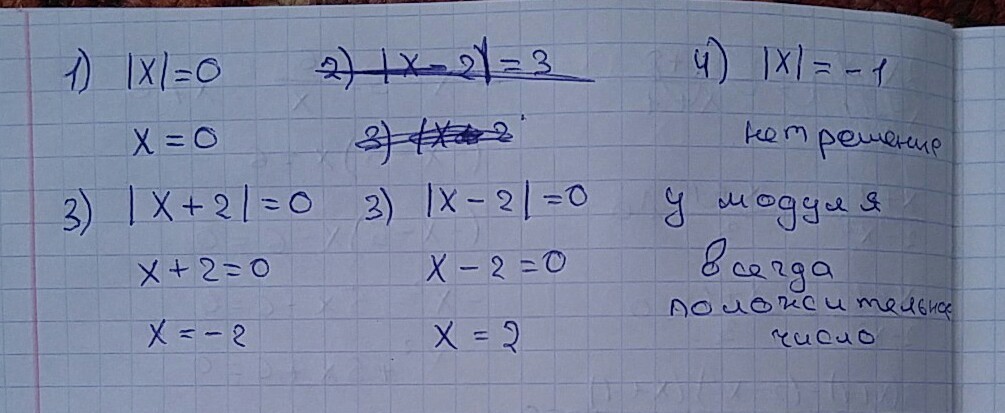 1) |x|=0
x=0
2) |x-2|=3
3) |x 2
3) |x+2|=0
x+2=0
x=-2
3) |x-2|=0
x-2=0
x=2
4) |x|=-1
нет решение
у модуля
всегда
положительное
число